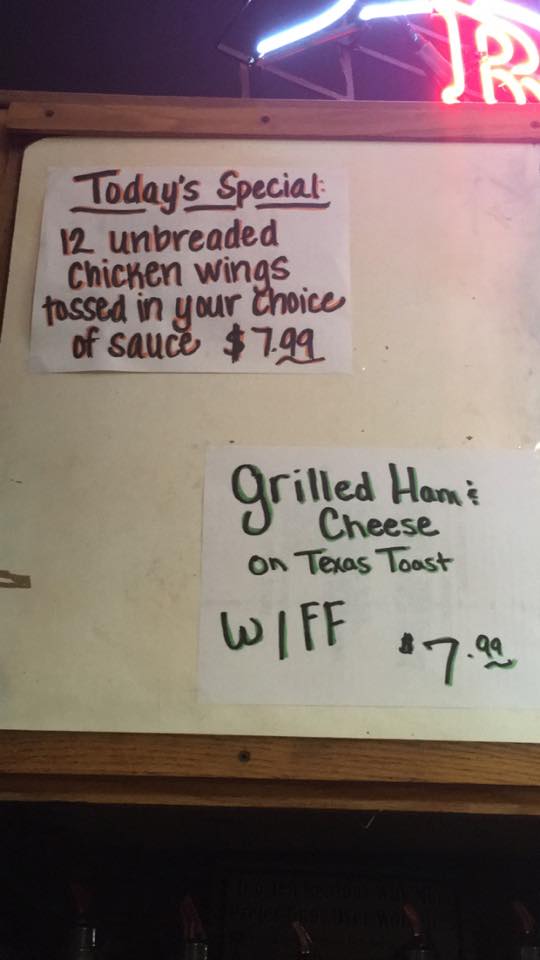 Today's Special:
12 unbreaded
Chicken wings
tossed in your choice
of sauce $7.99
Grilled Ham &
Cheese
on Texas Toast
W/FF $7.99